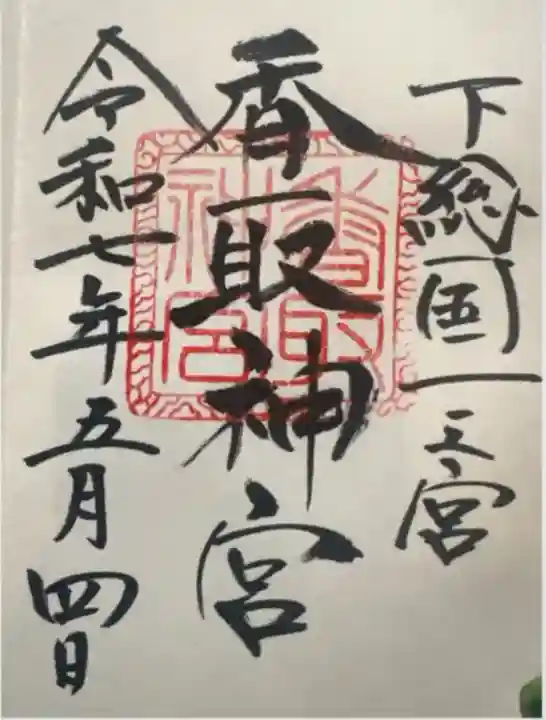 下総国一之宮
香取神宮
令和七年五月四日
香取神宮